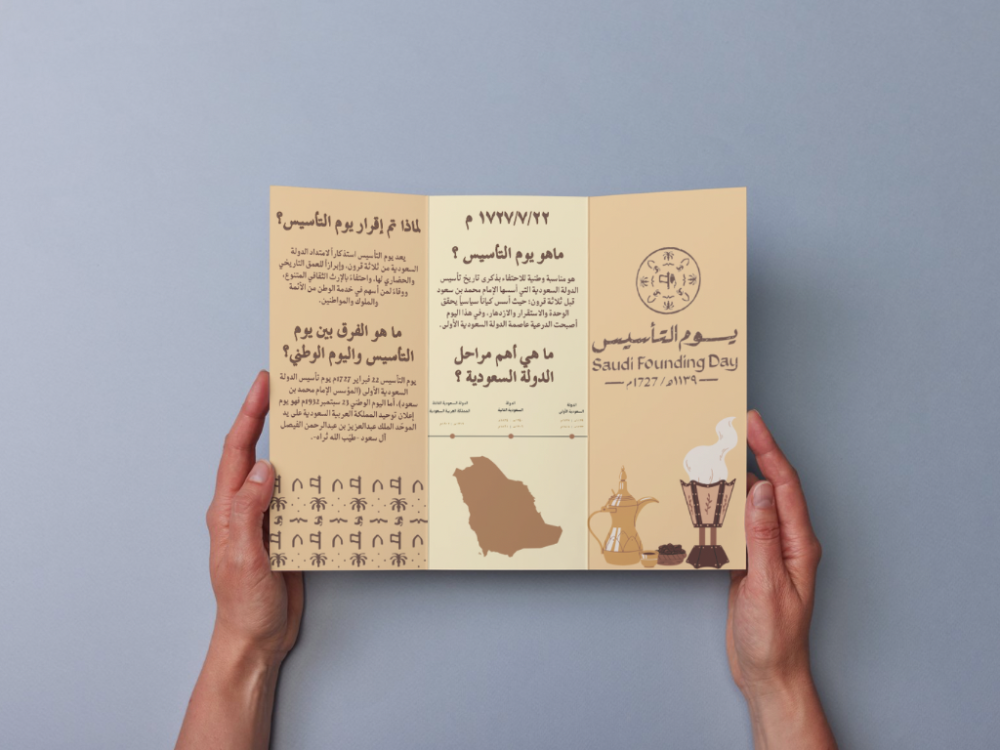 يـــوم التـأسـيـس
Saudi Founding Day
١١٣٩هـ/ 1727م
١٧٢٧/٧/٢٢ م
ماهو يوم التأسيس ؟
هو مناسبة وطنية للاحتفاء بذكرى تاريخ تأسيس
الدولة السعودية التي أسسها الإمام محمد بن سعود
قبل ثلاثة قرون؛ حيث أسس كياناً سياسياً يحقق
الوحدة والاستقرار والازدهار، وفي هذا اليوم
أصبحت الدرعية عاصمة الدولة السعودية الأولى.
ما هي أهم مراحل
الدولة السعودية ؟
الدولة
السعودية الأولى
الدولة
السعودية الثانية
الدولة السعودية الثالثة
المملكة العربية السعودية
لماذا تم إقرار يوم التأسيس؟
يعد يوم التأسيس استذكاراً لامتداد الدولة
السعودية من ثلاثة قرون، وإبرازاً للعمق التاريخي
والحضاري لها، واحتفاءً بالإرث الثقافي المتنوع،
ووفاءً لمن أسهم في خدمة الوطن من الأئمة
والملوك والمواطنين.
ما هو الفرق بين يوم
التأسيس واليوم الوطني؟
يوم التأسيس 22 فبراير 1727م يوم تأسيس الدولة
السعودية الأولى (المؤسس الإمام محمد بن
سعود)، أما اليوم الوطني 23 سبتمبر 1932م فهو يوم
إعلان توحيد المملكة العربية السعودية على يد
الموحّد الملك عبدالعزيز بن عبدالرحمن الفيصل
آل سعود -طيّب الله ثراه-.